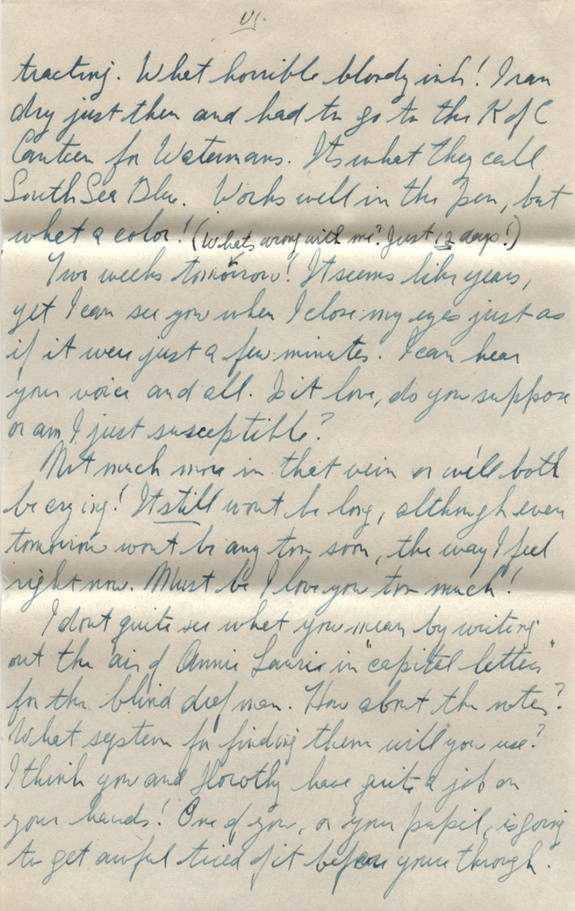 VI.
tracting. What horrible bloody ink! I ran
dry just then and had to go to the K of C
Canteen for Watermans. Its what they call
South Sea Blue. Works well in the pen, but
what a color! (Whats wrong with me? Just 12 days!)
Two weeks tomorrow! It seems like years,
yet I can see you when I close my eyes just as
if it were just a few minutes. I can hear
your voice and all. Is it love, do you suppose
or am I just susceptible?
Not much more in that vein or we'll both
be crying! It still wont be long, although even
tomorrow wont be any too soon, the way I feel
right now. Must be I love you too much!
I dont quite see what you mean by writing
out the air of Annie Laurie in "capital letters"
for the blind deaf man. How about the notes?
What system for finding them will you use?
I think you and Dorothy have quite a job on
your hands! One of you, or your pupil, is going
to get awful tired of it before youre through.